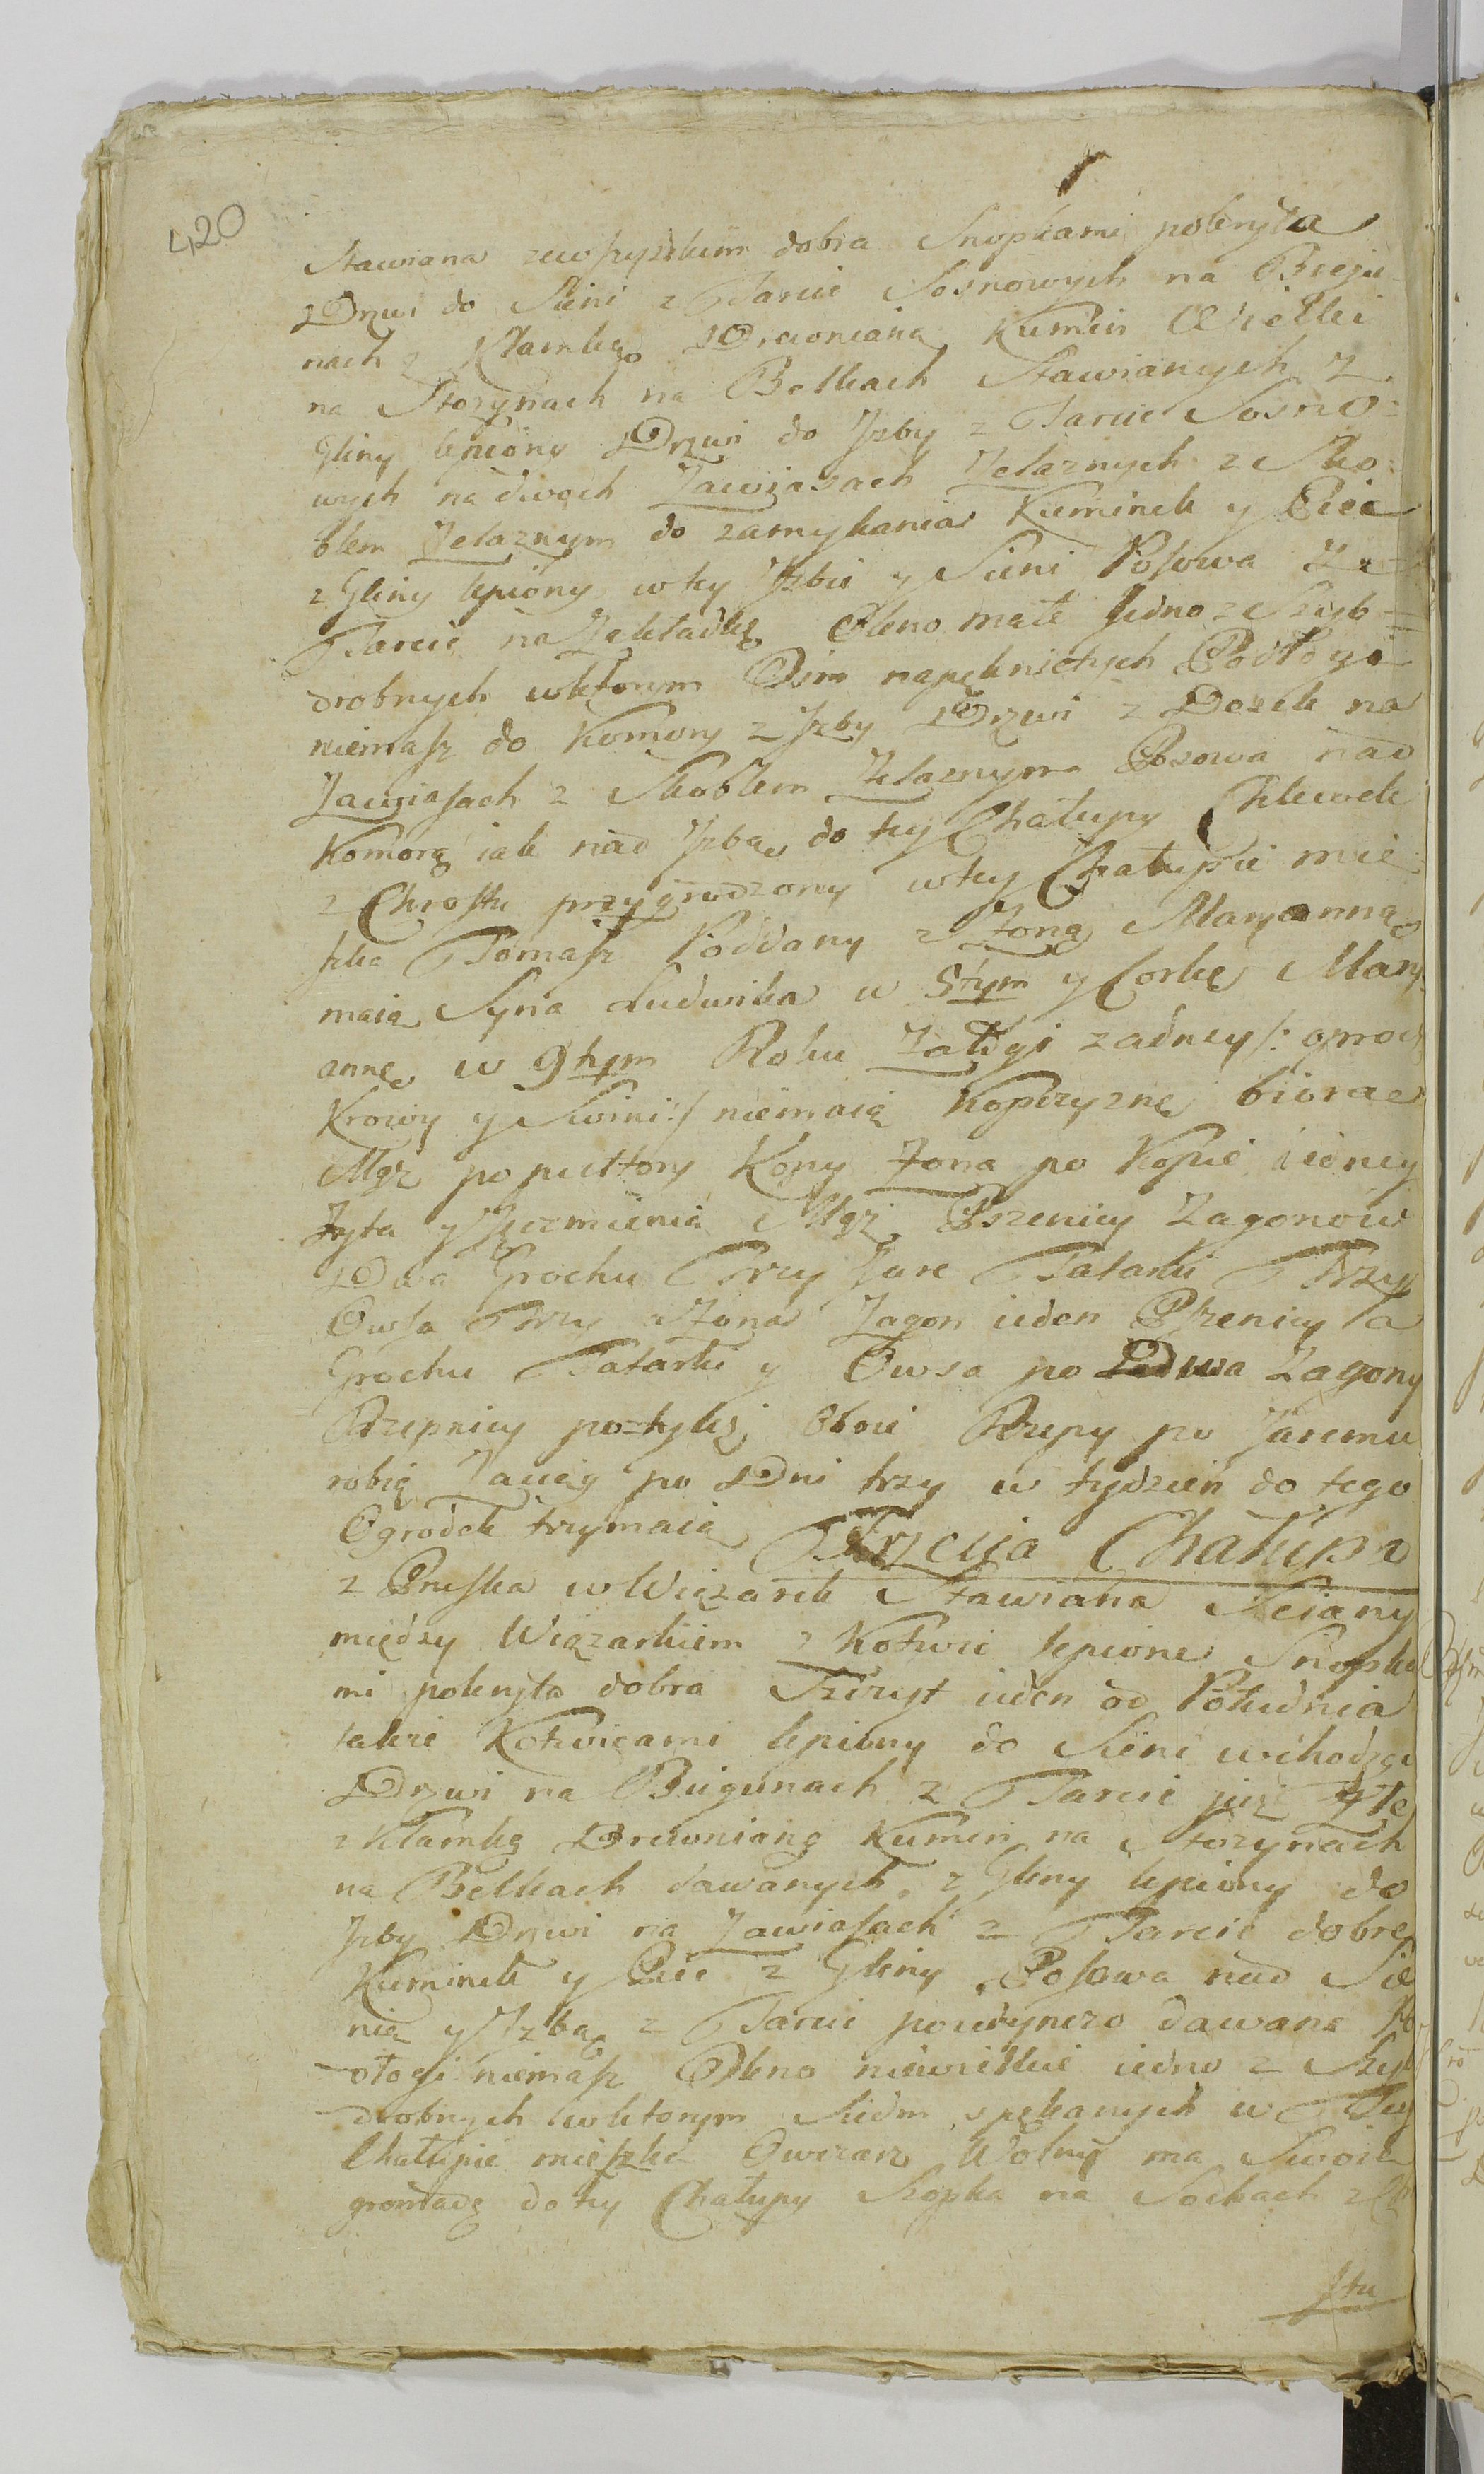 420
Stawiana zewszystkim dobra Snopkami pokryta
Drzwi do Sieni z Tarcic Sosnowych na Biegu-
nach z Klamką Drewnianą Kumin Wielki
na Storynach na Belkach Stawianych z
Gliny lepiony Drzwi do Jzby z Tarcic Sosno=
wych na dwoch Zawiasach Zelaznych z Sko=
blem Zelaznym do zamykania Kuminek y Piec
z Gliny lepiony w tey Jzbie y Sieni Posowa z
Tarcic na Zakładkę Okno małe Jedno z Szyb
drobnych w ktorym Ośm napękniętych Podłogi
niemasz do Komory z Jzby Drzwi z Desek na
Zawiasach z Skoblem Zelaznym Posowa nad
Komorą iak nad Jzbą do tey Chałupy Chlewek
z Chrostu przygrodzony w tey Chałupie mie
szka Tomasz Poddany z Zoną Maryanną
maią Syna Ludwika w 5tym y Corkę Mary
annę w 9tym Roku Załogi zadney /: oprocz
Krowy y Swini :/ niemaią Kopczyznę biorąc
Mąż po pułtory Kopy Zona po Kopie iedney
Zyta y Jęczmienia Mąż Pszenicy Zagonow
Dwa Grochu Trzy Jare Tatarki Trzy
Owsa Trzy a Zona Zagon ieden Pszenicy a
Grochu Tatarki y Owsa po Dwa Zagony
Rzepnicy po tyleż Oboie Rzepy po Jaremu
robią Zaciąg po Dni trzy w tydzień do tego
Ogrodek trzymaią Trzecia Chałupa
z Pruska w Wiązarek Stawiana Sciany
między Wiązarkiem z Kotwic lepione Snopka
mi pokryta dobra Szczyt ieden od Południa
takze Kotwicami lepiony do Sieni wchodząc
Drzwi na Biegunach z Tarcic już złe
z Klamką Drewnianą Kumin na Storynach
na Belkach dawanych z Gliny lepiony do
Jzby Drzwi na Zawiasach z Tarcic dobre
Kuminek y Piec z Gliny Posowa nad Sie
nią y Jzbą z Tarcic poiedynczo dawana Po
dłogi niemasz Okno niewielkie iedno z Szyb
drobnych w ktorym Siedm spękanych w Tey
Chałupie mieszka Owczarz Wolny ma Swoie
gromadę do tey Chałupy Szopka na Sochach z Ch
stu